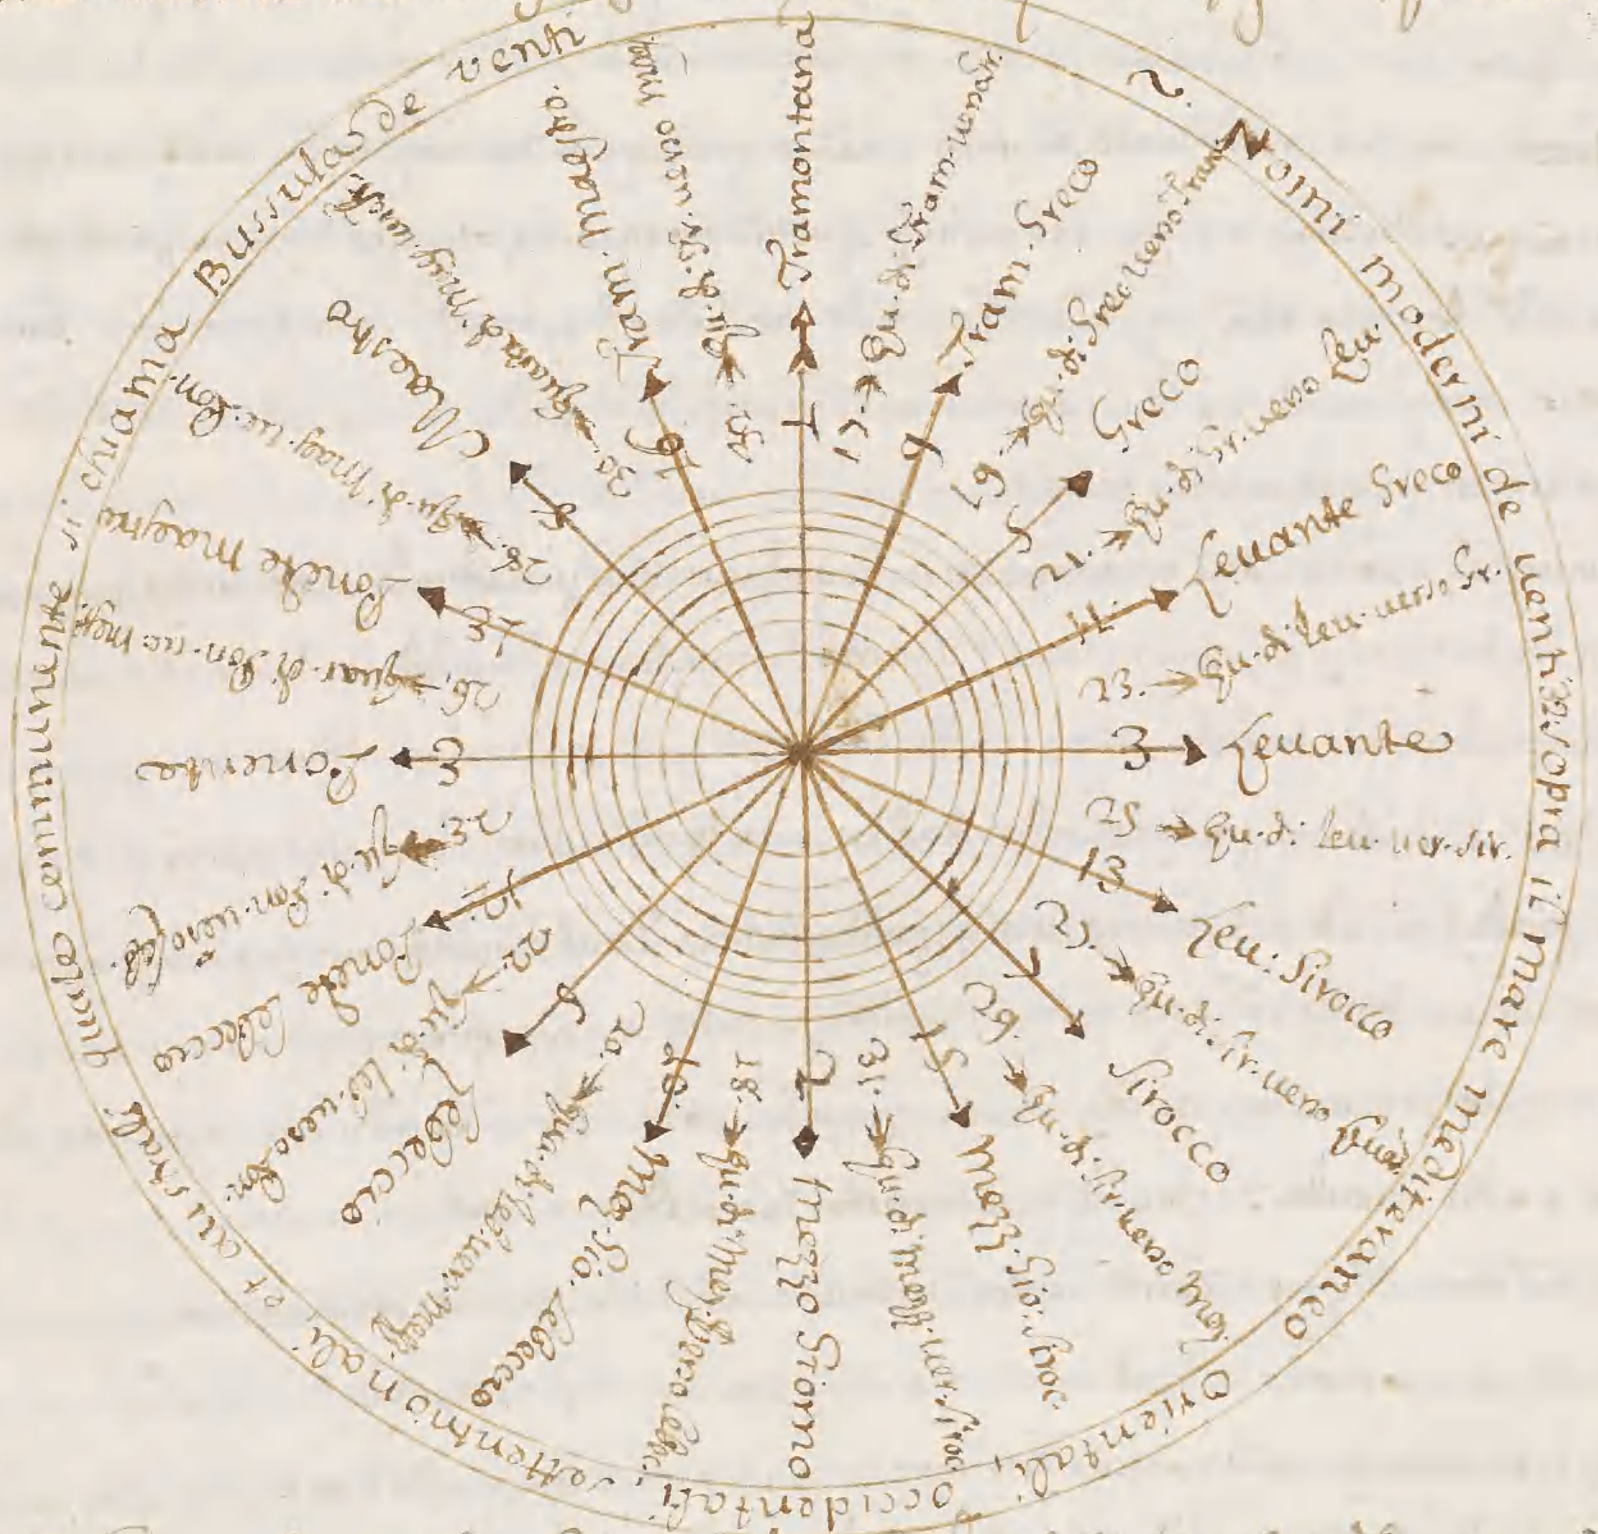 2.
Nomi moderni de uenti 32. sopra il mare mediterraneo orientali, occidentali, settentrionali, et australi quale communmente si chiama Bussula de venti
1 Tramontana
17 → Qu. di Tram. uerso Gr.
9 Tram. Greco
19. → Qu. di Grec. uerso Tram.
5 Greco
21. → Qu. di Gr. uerso Leu.
11. Leuante Greco
23. → Qu. di Leu. uerso Gr.
3 Leuante
25 → Qu. di Leu. uer. sir.
13 Leu: Sirocco
27. → Qu. di Sir. uerso
7 Sirocco
29. → Qu. di Sir. uerso
15 Mezz. Gio: Siroc.
31. → Qu. di mezz. uer. Siroc.
2 mezzo Giorno
18. → Qu. di Mez. uerso
10. Mez. Gio. Lebeccio
20. → Qua. di Leb. uer. mezz.
6 Lebeccio
22. → Qu. di Leb. uerso Pon.
12. Ponete Lebeccio
→ Qu. di Pon. uerso Leb.
Ponente
26. → Quar. di Pon. ue.
Ponete maestro
28. → Qu. di Maes. ue. Pon.
8. Maestro
30. →
16 Tram. maestro.
32. → Qu. di Tr. uerso